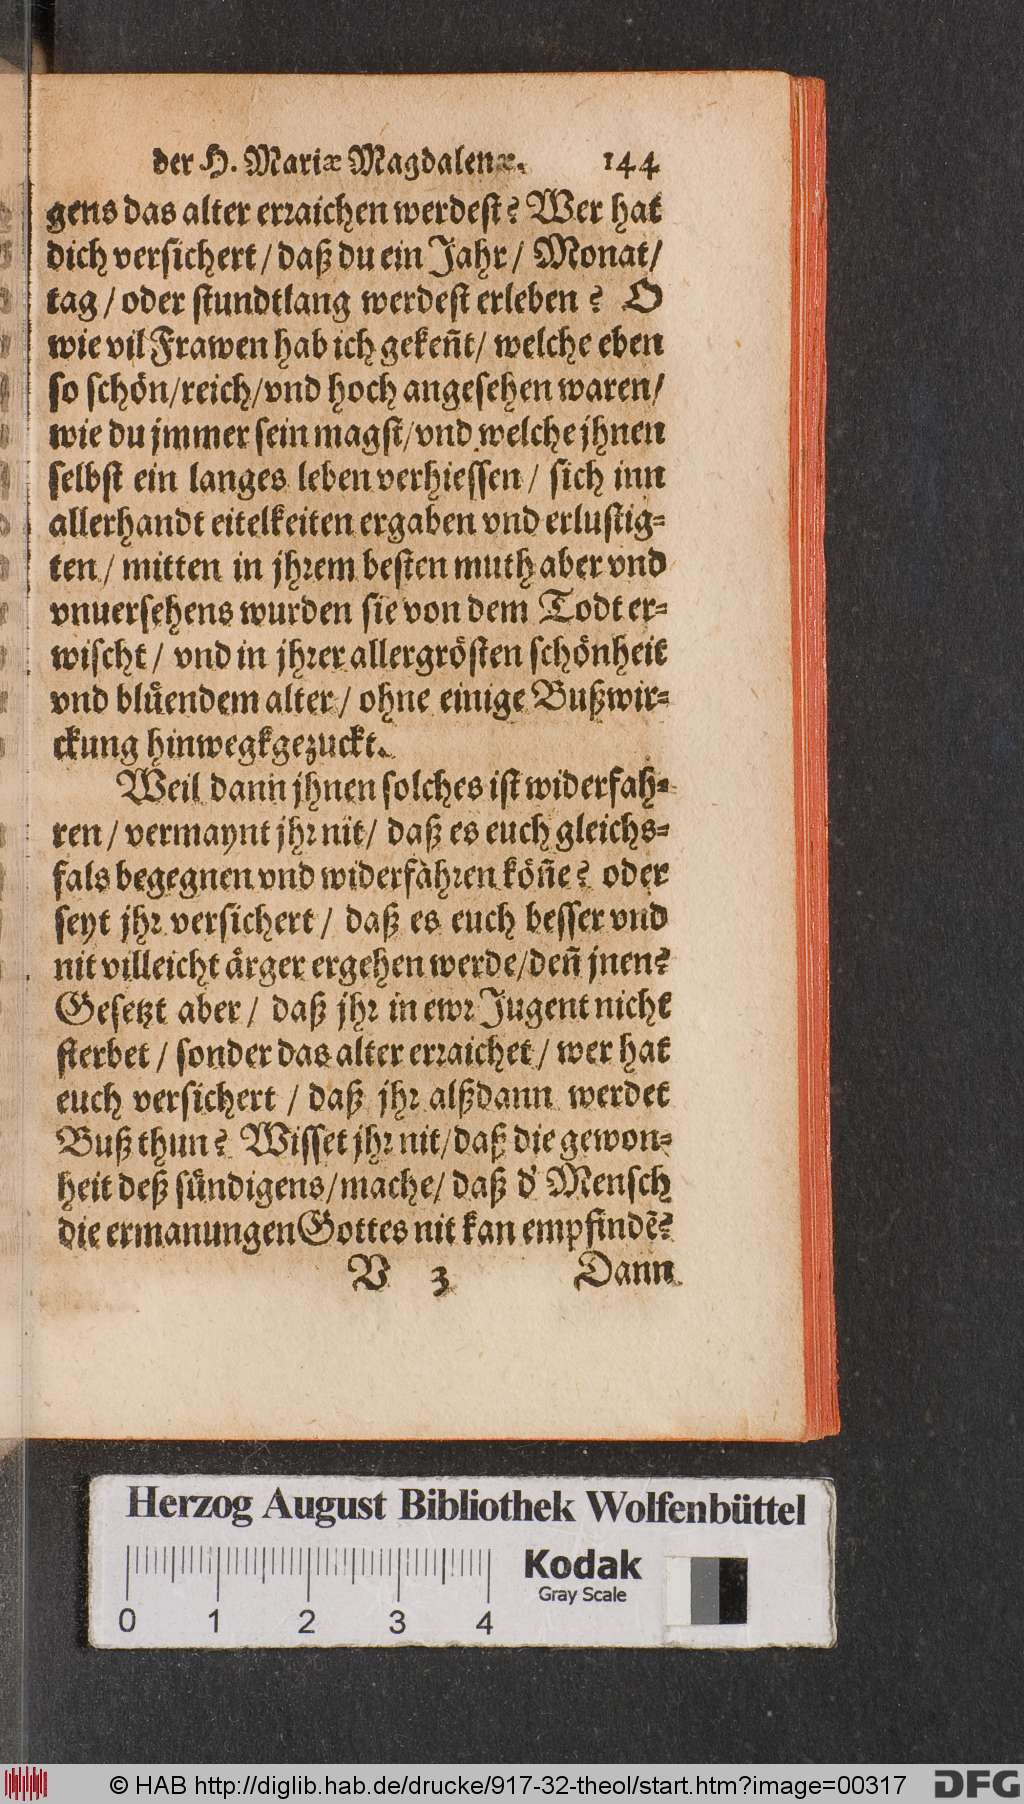 der H. Mariæ Magdalenæ. 144
gens das alter erraichen werdest? Wer hat
dich versichert / daß du ein Jahr / Monat /
tag / oder stundtlang werdest erleben? O
wie vil Frawen hab ich gekeñt / welche eben
so schön / reich / vnd hoch angesehen waren /
wie du jmmer sein magst / vnd welche jhnen
selbst ein langes leben verhiessen / sich inn
allerhandt eitelkeiten ergaben vnd erlustig-
ten / mitten in jhrem besten muth aber vnd
vnuersehens wurden sie von dem Todt er-
wischt / vnd in jhrer allergrösten schönheit
vnd blüendem alter / ohne einige Bußwir-
ckung hinwegkgezuckt.
Weil dann jhnen solches ist widerfah-
ren / vermaynt jhr nit / daß es euch gleichs-
fals begegnen vnd widerfahren köñe? oder
seyt jhr versichert / daß es euch besser vnd
nit villeicht ärger ergehen werde / deñ jnen?
Gesetzt aber / daß jhr in ewr Jugent nicht
sterbet / sonder das alter erraichet / wer hat
euch versichert / daß jhr alßdann werdet
Buß thun? Wisset jhr nit / daß die gewon-
heit deß sündigens / mache / daß d' Mensch
die ermanungen Gottes nit kan empfindē?
V 3 Dann
Herzog August Bibliothek Wolfenbüttel
Kodak
Gray Scale
0 1 2 3 4
© HAB http://diglib.hab.de/drucke/917-32-theol/start.htm?image=00317
DFG